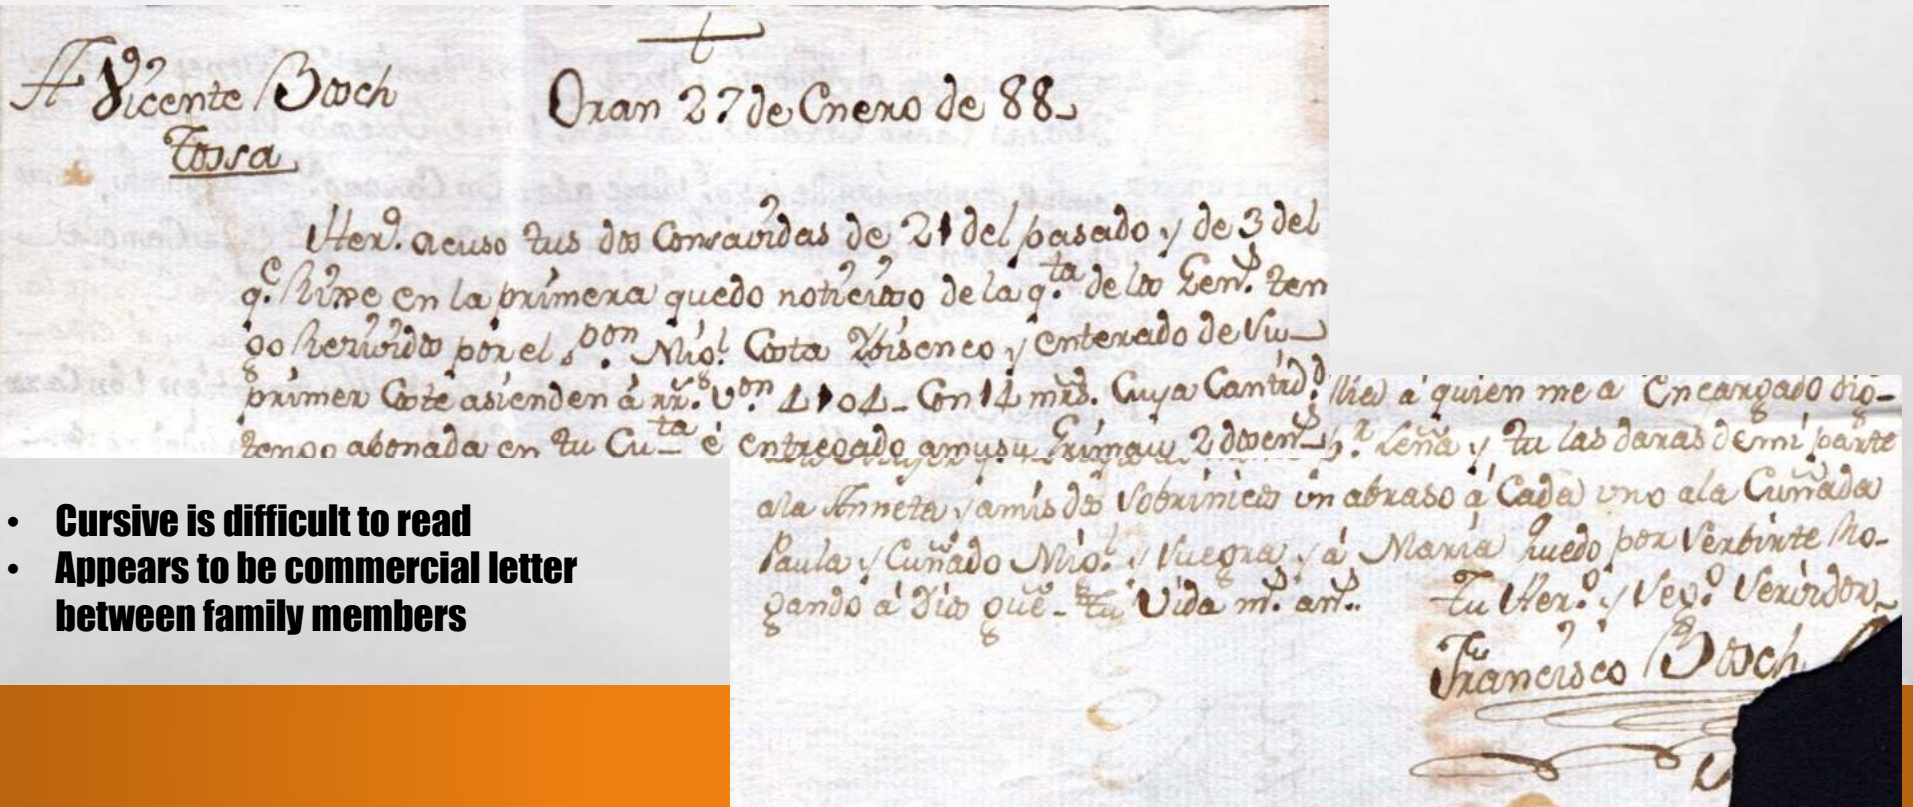 A Dn Vicente Bosch
Tossa
Oran 27 de Enero de 88
Herº. acuso tus dos Consavidas de 21 del pasado y de 3 del
q.e Rixe en la primera quedo noticioso de la q.ta de los Gen.s ten
go Rezivido por el Pon Mig.l Costa y enterado de Su
primer Coste asienden á rr.s Von 4104 Con 14 mrs. Cuya Cantid.d
tengo abonada en tu Cu.ta é entregado a
a quien me a Encargado
Leña y tu las daras de mi parte
ala Anneta y amis dos Sobrinicos un abraso á Cada uno ala Cuñada
Paula y Cuñado Mig.l y Suegra y á Maria quedo por Serbirte Ro-
gando á Dios gue tu Vida m.s an.s
Tu Her.º y Seg.º Servidor
Fran.co Bosch
• Cursive is difficult to read
• Appears to be commercial letter
between family members